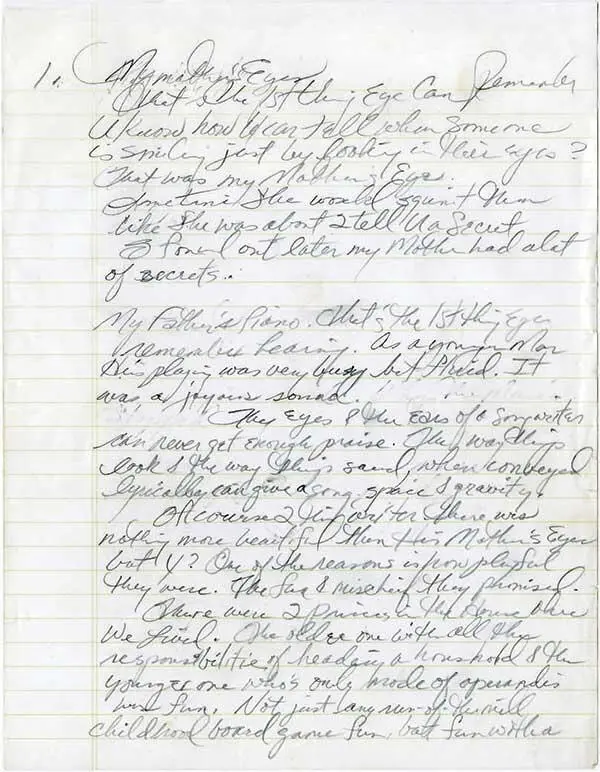 1. My mother's Eyes
That's the 1st thing Eye Can Remember
U know how U can tell when someone
is smiling just by looking in their eyes?
That was my Mother's Eyes.
Sometimes She would squint them
like She was about 2 tell U a Secret
Eye found out later my Mother had a lot
of secrets.
My Father's Piano. That's the 1st thing Eye
remember hearing. As a younger Man
His playing was very busy but fluid. It
was a joyous sound.
The Eyes & the Ears of a Songwriter
can never get enough praise. The way things
look & the way things sound, when conveyed
lyrically can give a song space & gravity.
Of course 2 this writer there was
nothing more beautiful than His Mother's Eyes
but Y? One of the reasons is how playful
they were. The fun & mischief they promised.
There were 2 Princes in the House where
We lived. The older one with all the
responsibilities of heading a household & the
younger one who's only mode of operandis
was fun. Not just any run-of-the-mill
childhood board game fun, but fun with a